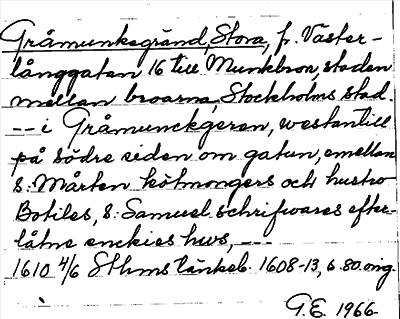 Gråmunkegränd, Stora, fr. Väster-
långgatan 16 till Munkbron, staden
mellan broarna, Stockholms stad.
-- i Gråmunckgeren, westantill
på södre siden om gatun, emellan
S: Mårten kötmongers och hustro
Botiles, S: Samuel schrifwares efter-
låtne enckies hws, ---
1610 4/6 Sthms tänkeb. 1608-13, s. 80. orig.
G.E. 1966.